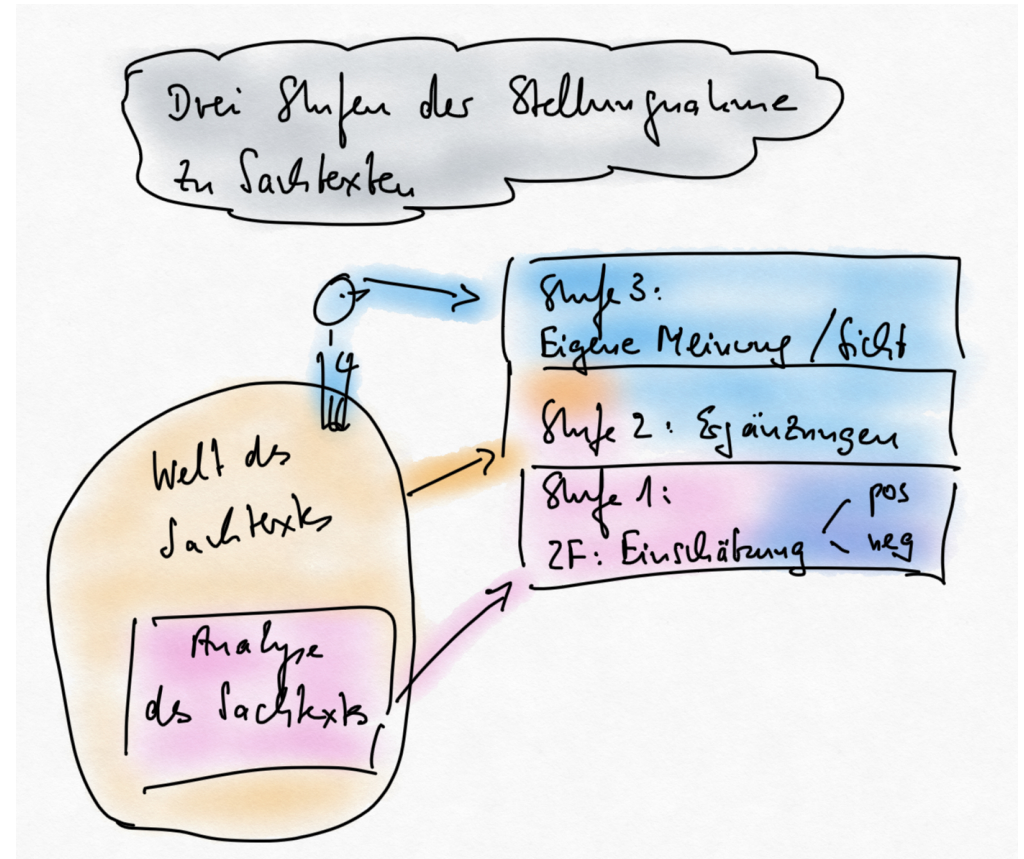 Drei Stufen der Stellungnahme
zu Sachtexten
Stufe 3:
Eigene Meinung / Sicht
Stufe 2: Ergänzungen
Stufe 1:
pos
2F: Einschätzung
neg
Welt des
Sachtexts
Analyse
des Sachtexts